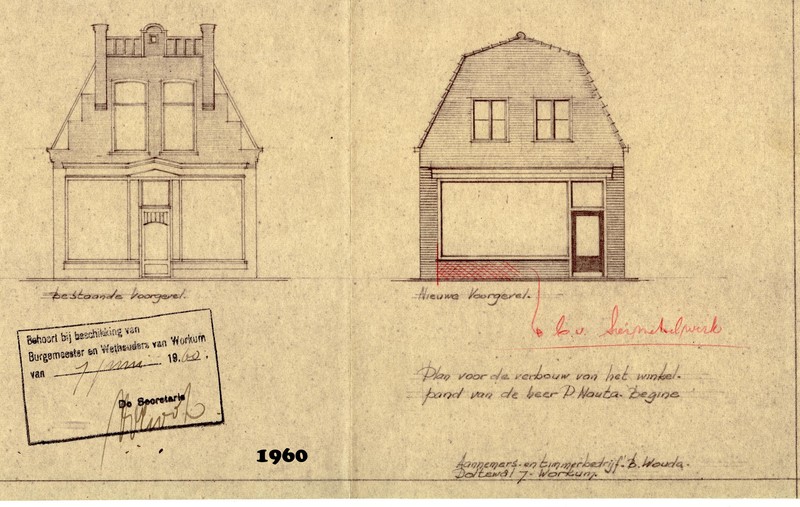 bestaande Voorgevel.
Nieuwe Voorgevel.
Behoort bij beschikking van
Burgemeester en Wethouders van Workum
van 7 juni 1960.
De Secretaris
1960
Plan voor de verbouw van het winkel-
pand van de heer P. Nauta. Begine
Aannemers- en timmerbedrijf. B. Wouda.
Doltewal 7 - Workum.